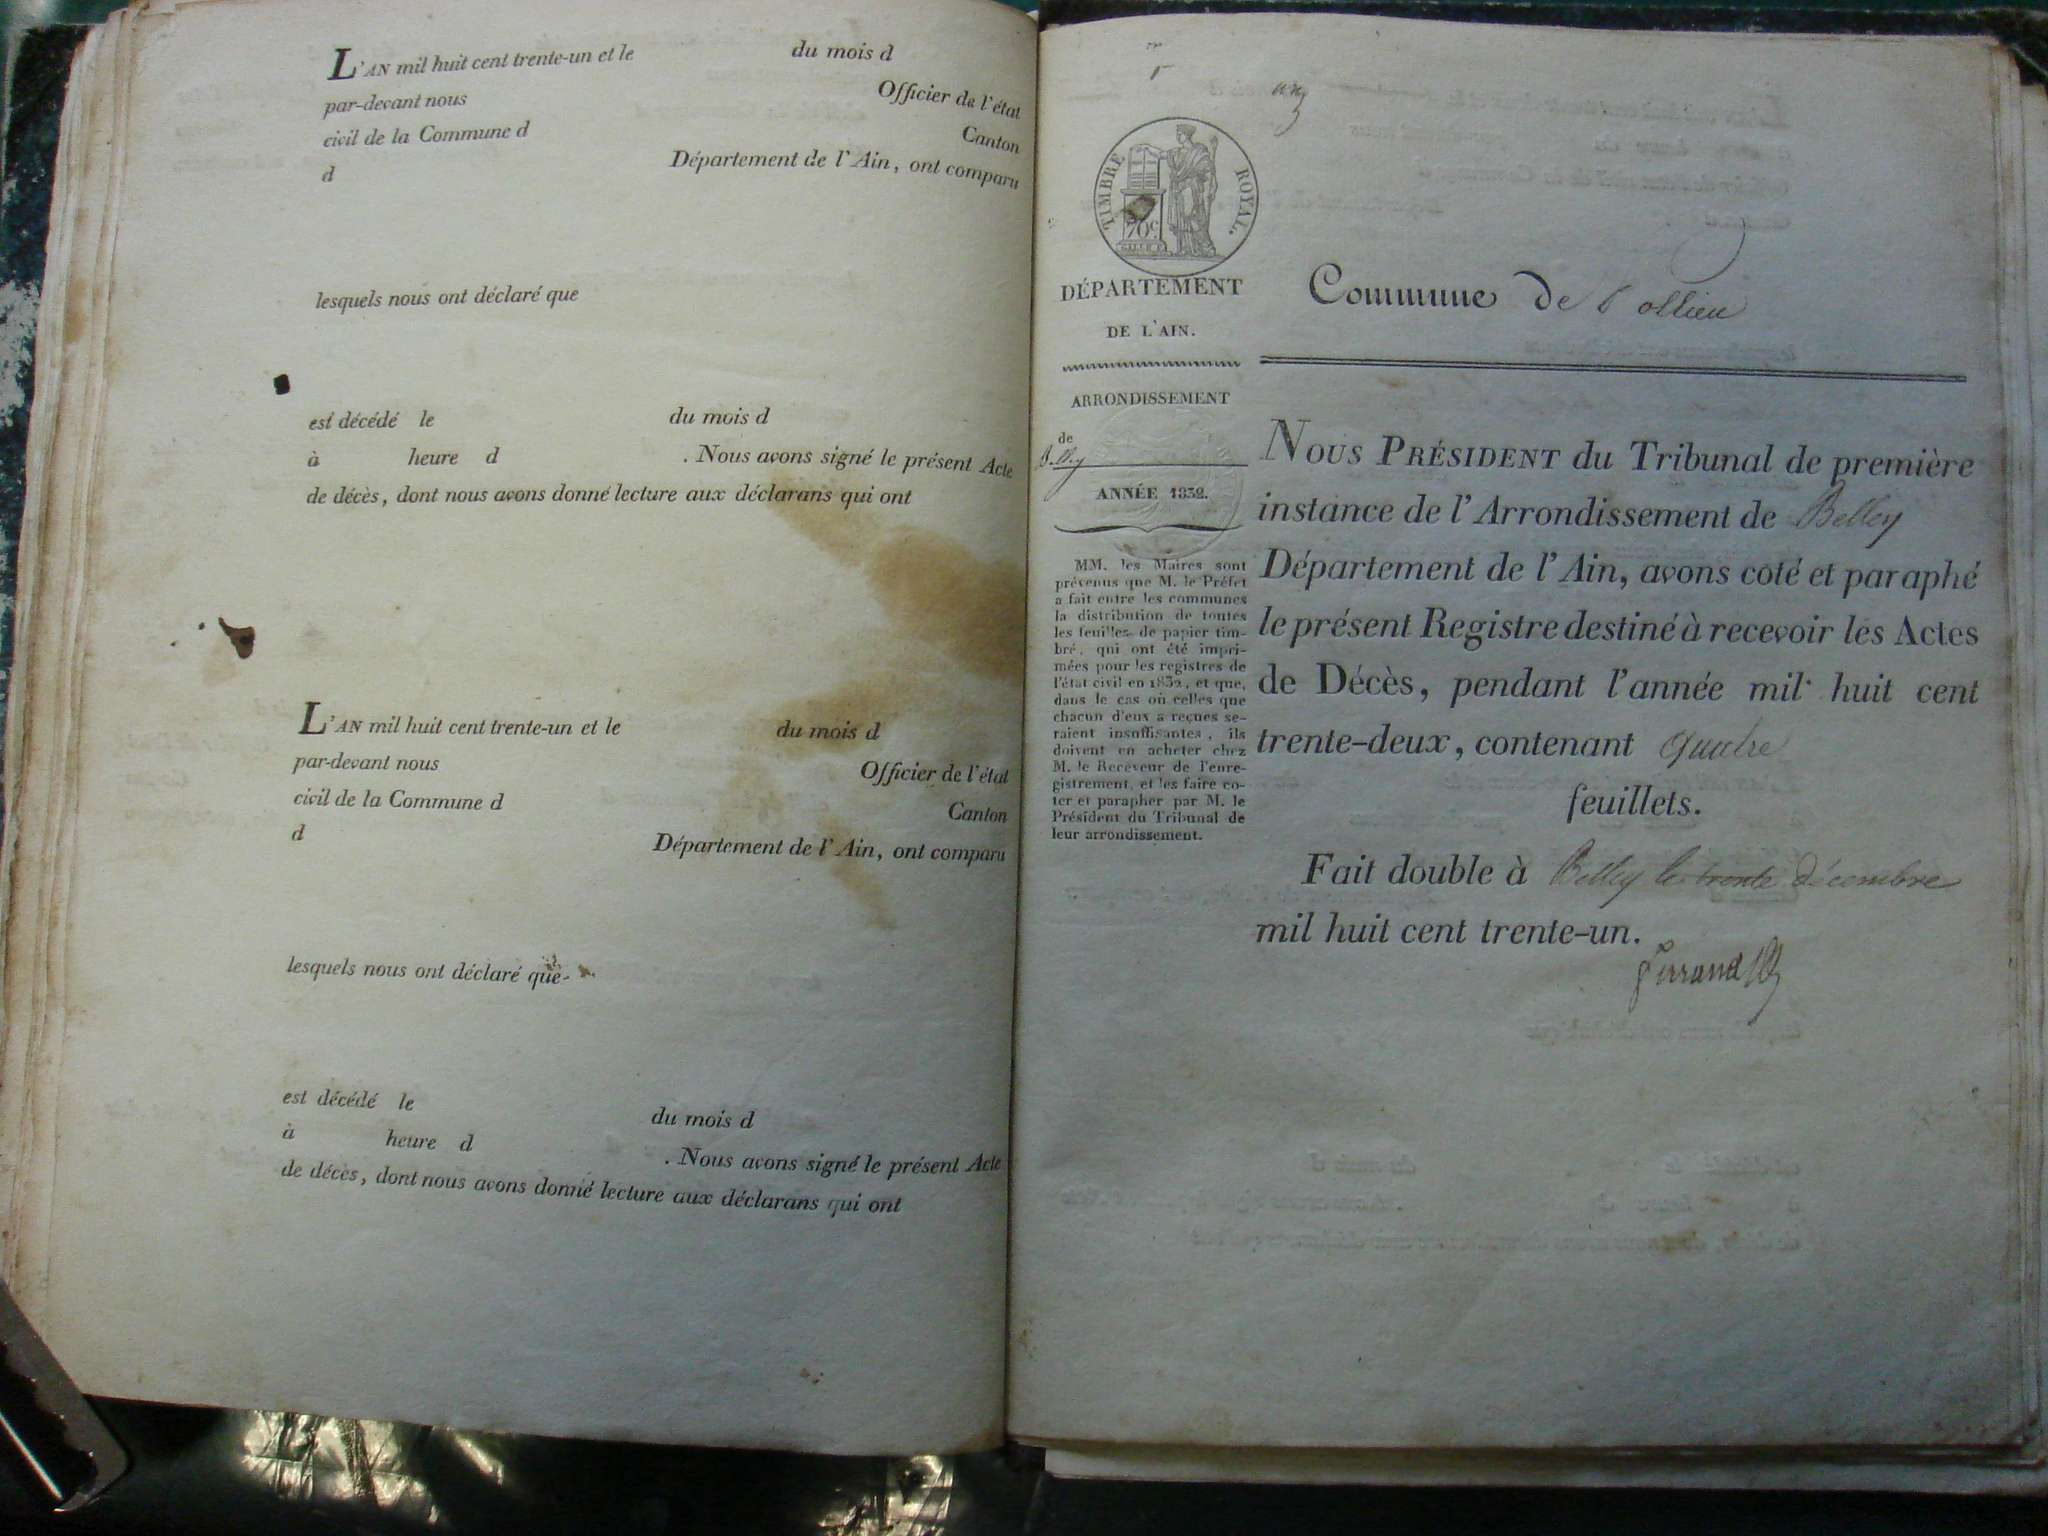 L'AN mil huit cent trente-un et le du mois d
par-devant nous Officier de l'état
civil de la Commune d Canton
d Département de l'Ain, ont comparu
lesquels nous ont déclaré que
est décédé le du mois d
à heure d . Nous avons signé le présent Acte
de décès, dont nous avons donné lecture aux déclarans qui ont
L'AN mil huit cent trente-un et le du mois d
par-devant nous Officier de l'état
civil de la Commune d Canton
d Département de l'Ain, ont comparu
lesquels nous ont déclaré que
est décédé le du mois d
à heure d . Nous avons signé le présent Acte
de décès, dont nous avons donné lecture aux déclarans qui ont
TIMBRE ROYAL.
70c
DÉPARTEMENT
DE L'AIN.
ARRONDISSEMENT
de
Belley
ANNÉE 1832.
MM. les Maires sont
prévenus que M. le Préfet
a fait entre les communes
la distribution de toutes
les feuilles de papier tim-
bré, qui ont été impri-
mées pour les registres de
l'état civil en 1832, et que,
dans le cas où celles que
chacun d'eux a reçues se-
raient insuffisantes, ils
doivent en acheter chez
M. le Receveur de l'enre-
gistrement, et les faire co-
ter et parapher par M. le
Président du Tribunal de
leur arrondissement.
Commune de Pollieu
NOUS PRÉSIDENT du Tribunal de première
instance de l'Arrondissement de Belley
Département de l'Ain, avons coté et paraphé
le présent Registre destiné à recevoir les Actes
de Décès, pendant l'année mil huit cent
trente-deux, contenant quatre
feuillets.
Fait double à Belley le trente décembre
mil huit cent trente-un.